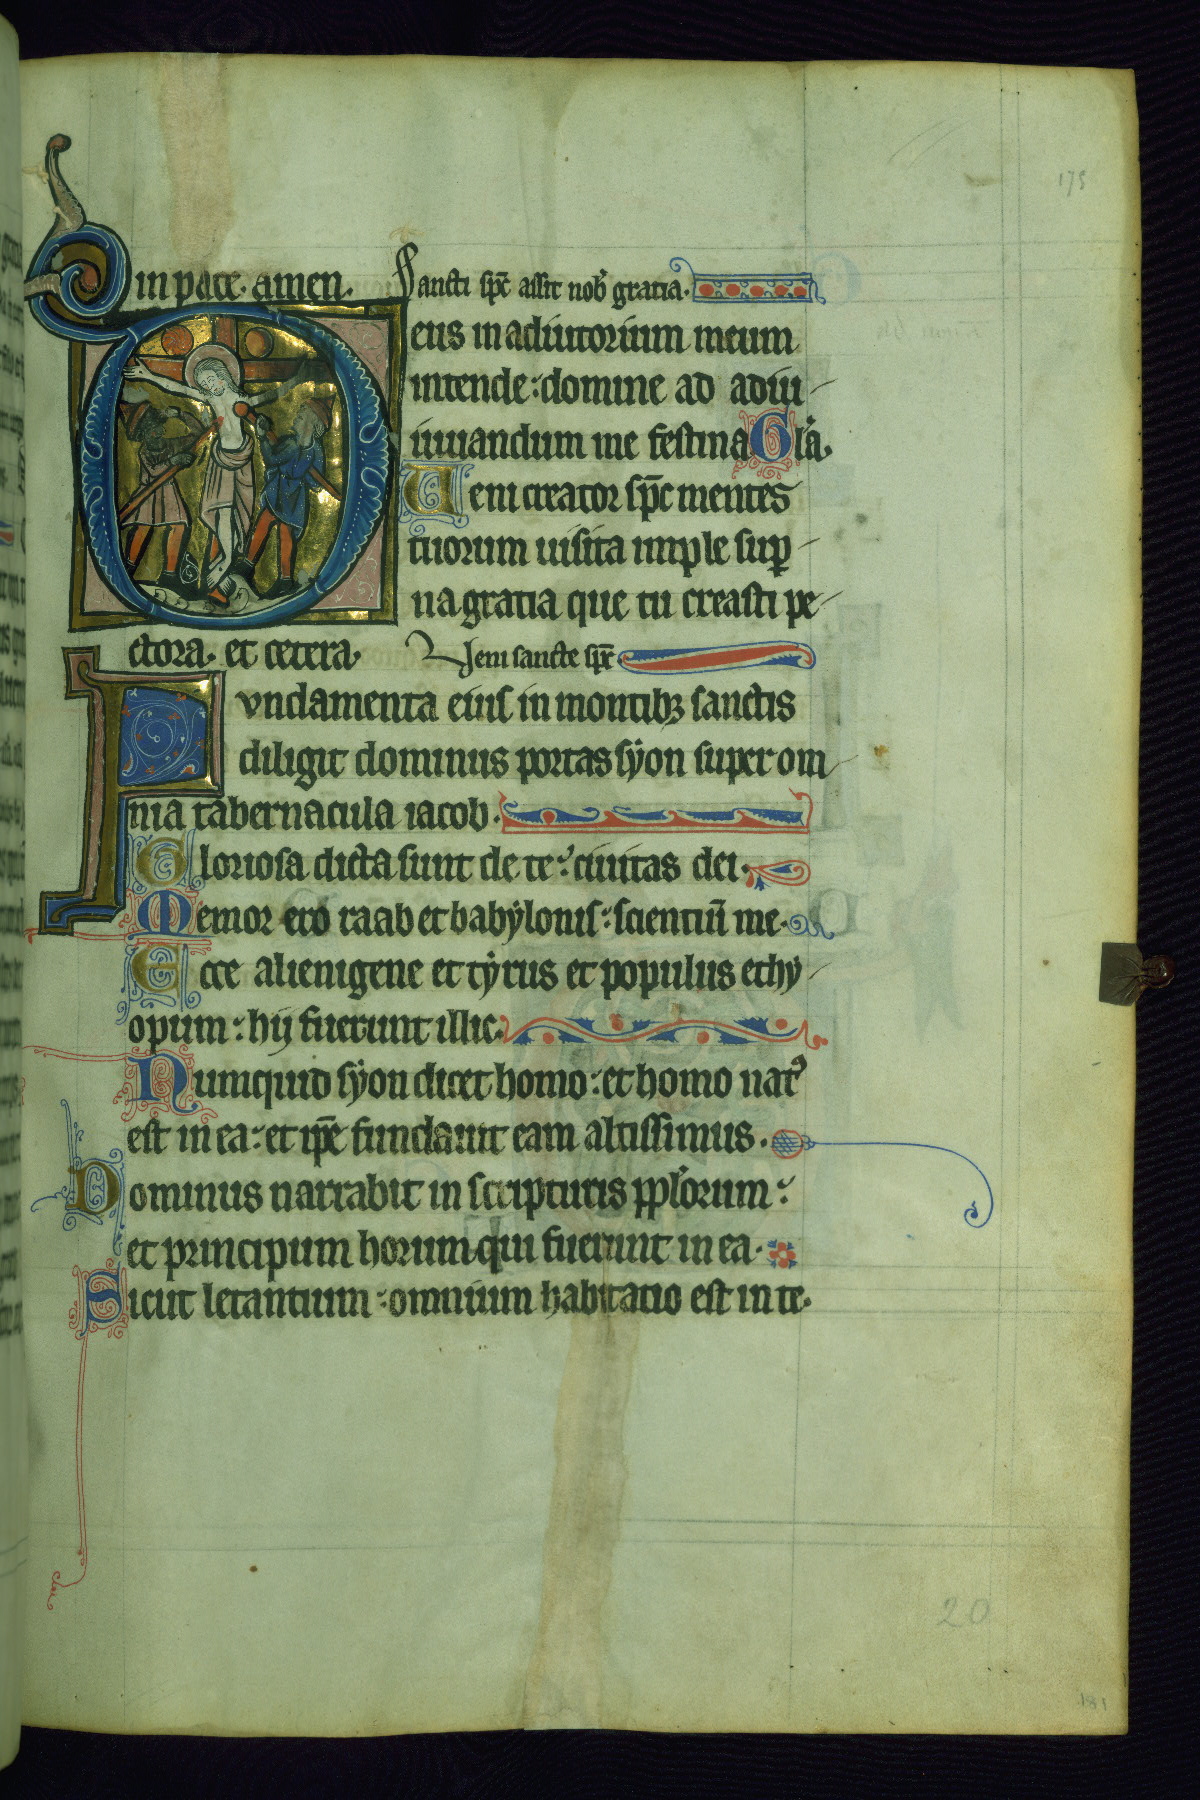 175
in pace. amen. Sancti sp̄c assit nob̉ gratia.
Deus in adiutorium meum
intende: domine ad adiu-
iuuandum me festina Gl̉a.
Ueni creator sp̄c mentes
tuorum uisita imple sup̲-
na gratia que tu creasti pe-
ctora. et cetera. Veni sancte sp̄c
Fvndamenta eius in montibꝫ sanctis
diligit dominus portas sẏon super om-
nia tabernacula iacob.
Gloriosa dicta sunt de te: ciuitas dei.
Memor ero raab et babẏlonis: scientiū me.
Ecce alienigene et tẏrus et populus ethy-
opum: hij fuerunt illic.
Numquid sẏon dicet homo: et homo natꝰ
est in ea: et ip̄e fundauit eam altissimus.
Dominus narrabit in scripturis pp̉lorum:
et principum horum qui fuerunt in ea.
Sicut letantium: omnium habitatio est in te.
20
181